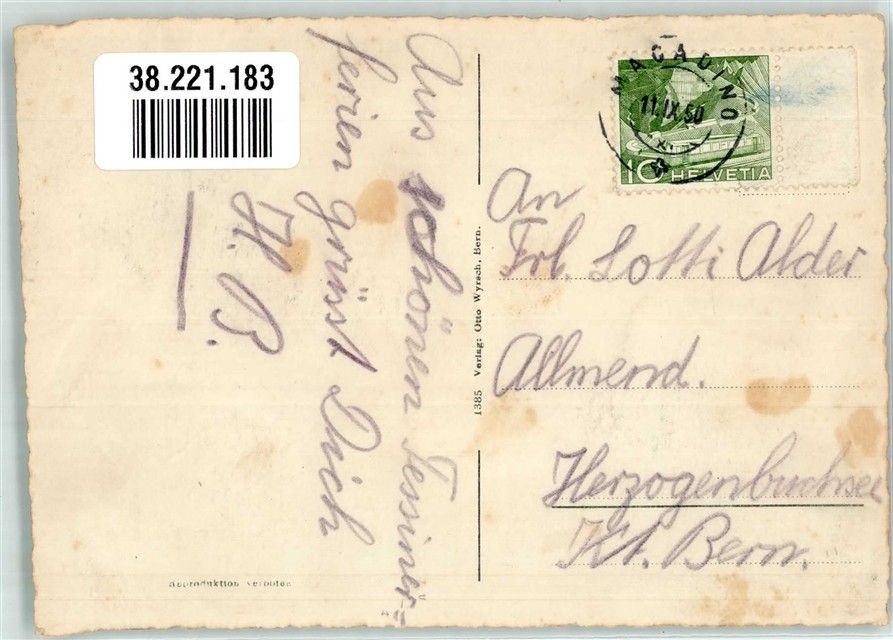 38.221.183
Aus schönen Tessiner-
ferien grüsst Dich
H. B.
Reproduktion verboten
1385 Verlag: Otto Wyrsch, Bern.
MAGADINO
11.IX.50
10 HELVETIA
An
Frl. Lotti Alder
Allmend.
Herzogenbuchsee
Kt. Bern.